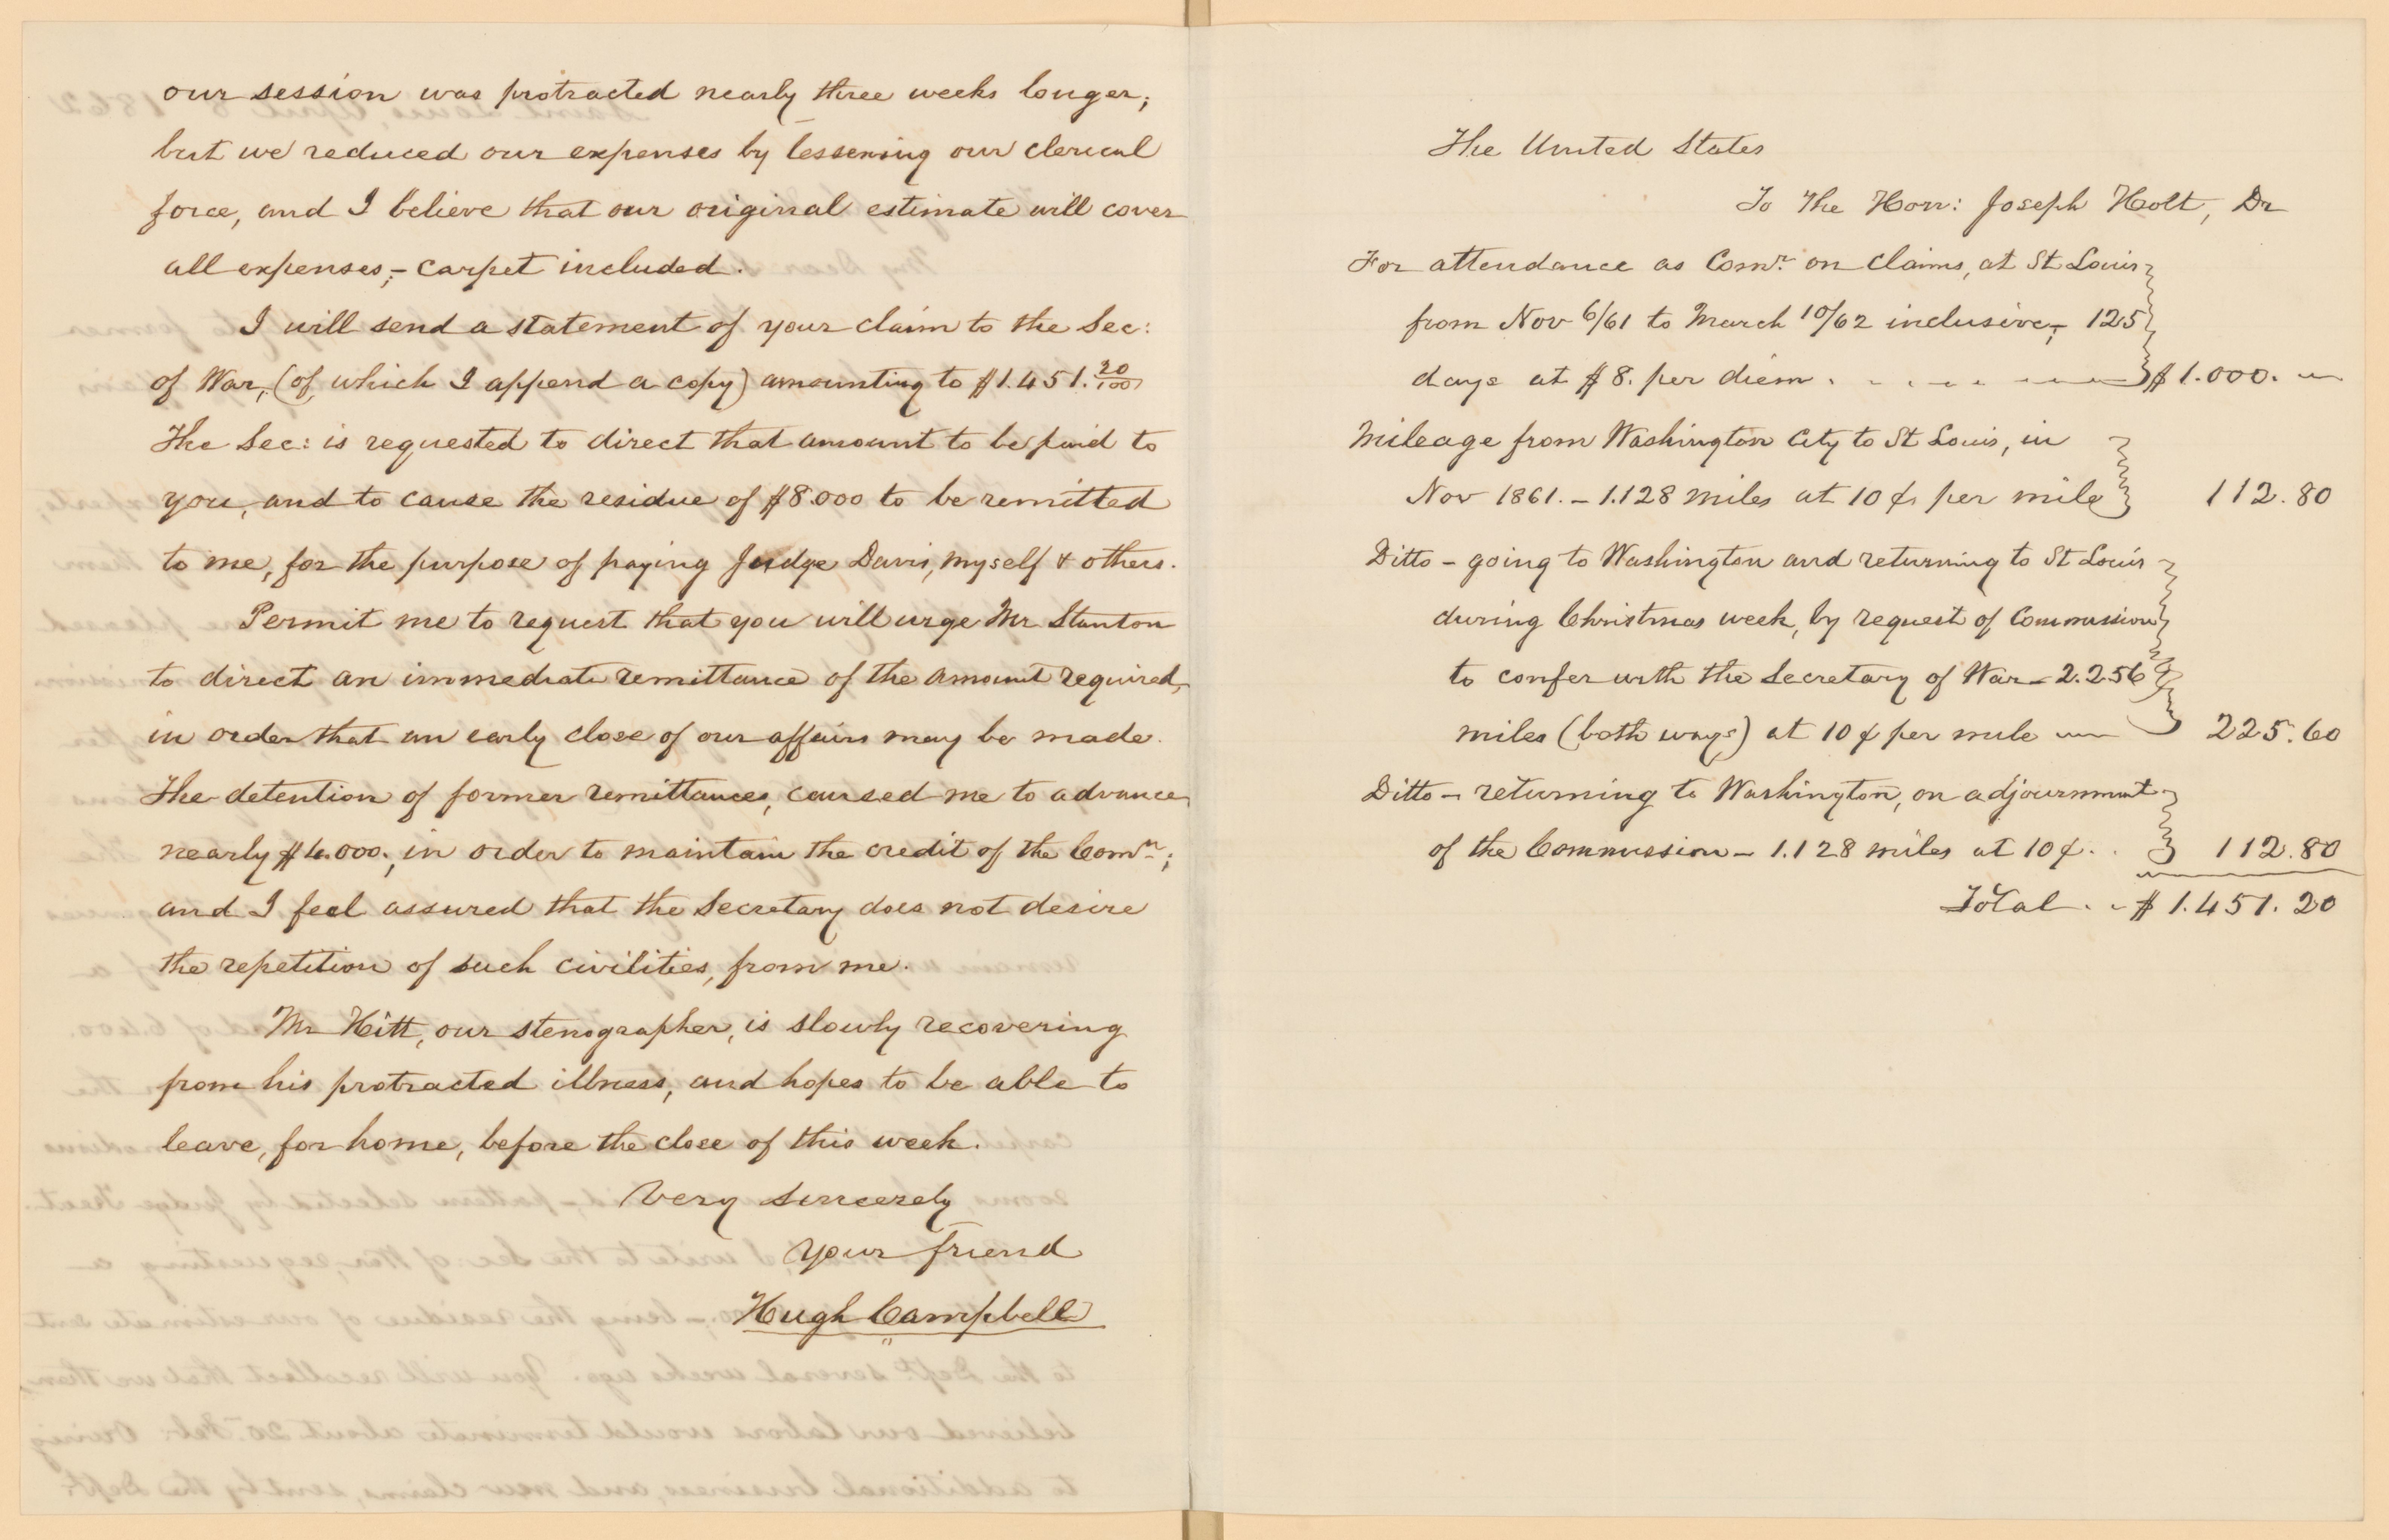 our session was protracted nearly three weeks longer;
but we reduced our expenses by lessening our clerical
force, and I believe that our original estimate will cover
all expenses,- carpet included.
I will send a statement of your claim to the Sec:
of War, (of which I append a copy) amounting to $1.451. 20/100
The Sec: is requested to direct that amount to be paid to
you, and to cause the residue of $8.000 to be remitted
to me, for the purpose of paying Judge Davis, myself & others.
Permit me to request that you will urge Mr Stanton
to direct an immediate remittance of the amount required,
in order that an early close of our affairs may be made.
The detention of former remittances, caused me to advance
nearly $4.000., in order to maintain the credit of the Comn;
and I feel assured that the Secretary does not desire
the repetition of such civilities, from me.
Mr Hitt, our stenographer, is slowly recovering
from his protracted illness, and hopes to be able to
leave, for home, before the close of this week.
Very sincerely
Your friend
Hugh Campbell
The United States
To The Hon: Joseph Holt, Dr
For attendance as Comr on Claims, at St Louis
from Nov 6/61 to March 10/62 inclusive,- 125
days at $8. per diem . . . . $1.000. —
Mileage from Washington City to St Louis, in
Nov 1861. - 1.128 miles at 10¢ per mile 112.80
Ditto - going to Washington and returning to St Louis
during Christmas week, by request of Commission
to confer with the Secretary of War - 2.256
miles (both ways) at 10¢ per mile — 225.60
Ditto - returning to Washington, on adjournment
of the Commission - 1.128 miles at 10¢. . 112.80
Total . . $1.451.20